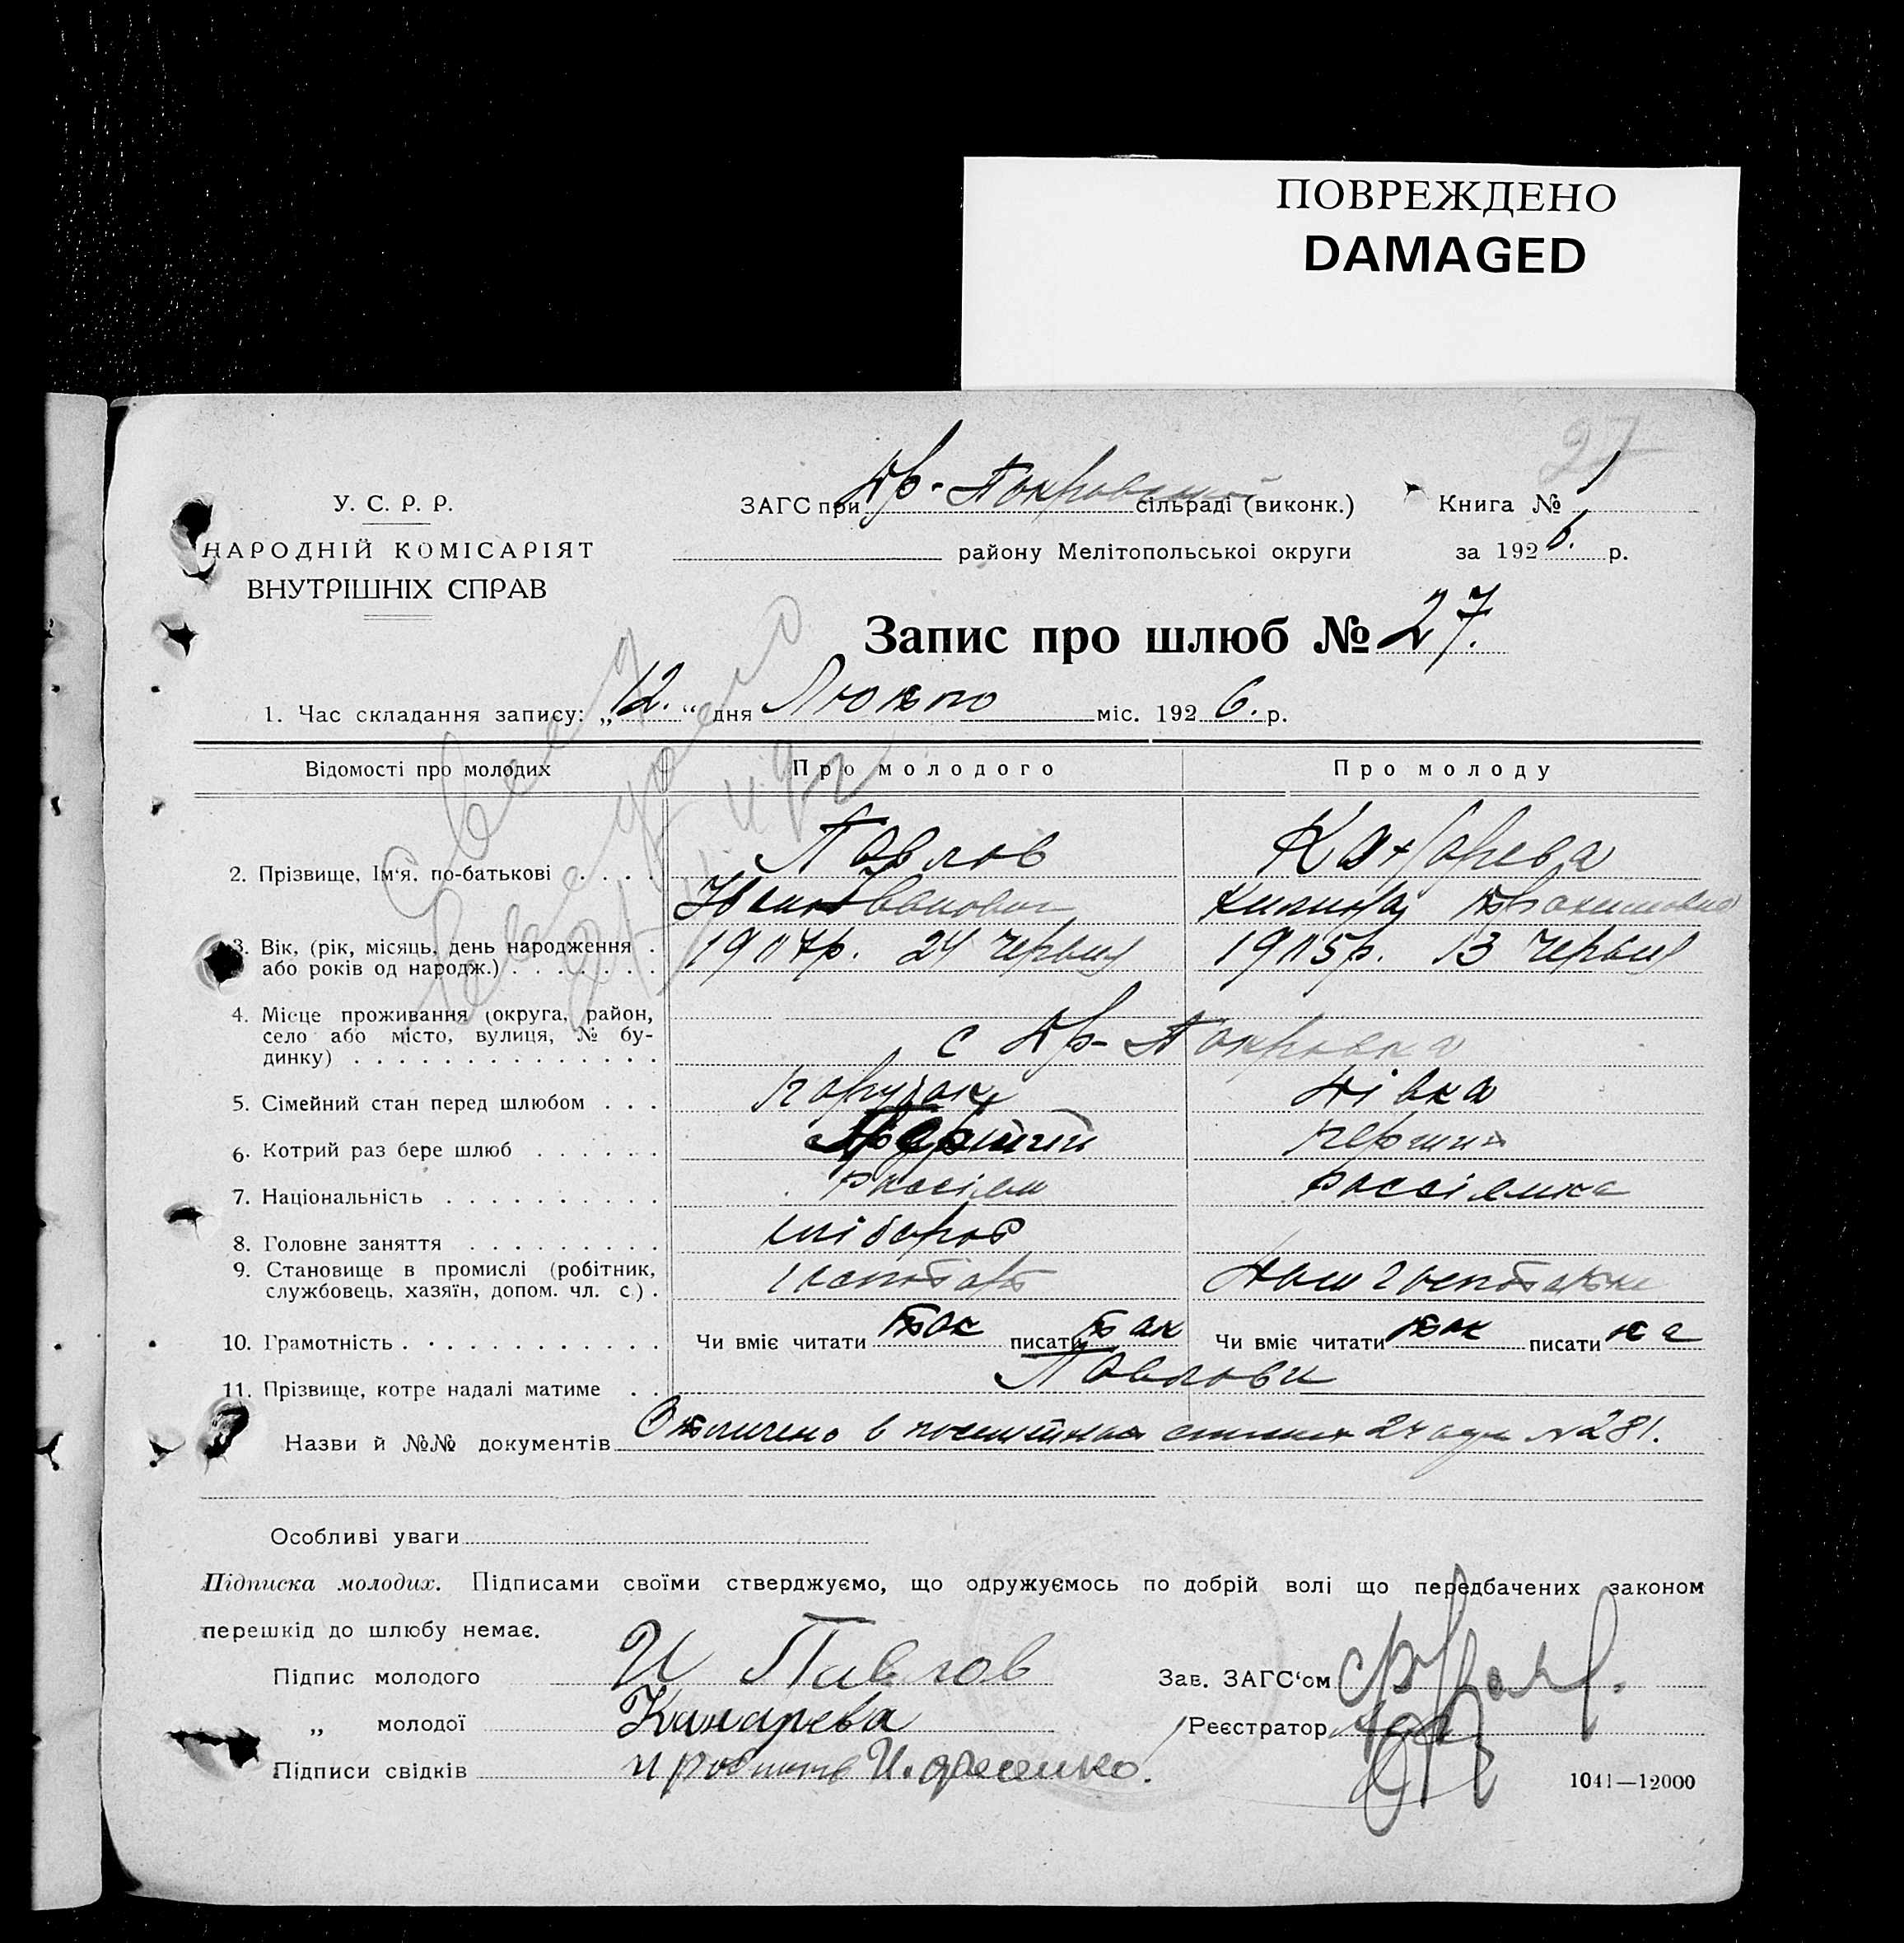 ПОВРЕЖДЕНО
DAMAGED
27
У. С. Р. Р.
НАРОДНІЙ КОМІСАРІЯТ
ВНУТРІШНІХ СПРАВ
ЗАГС при Др-Покровській сільраді (виконк.)
Книга № 1
району Мелітопольськоі округи
за 1926. р.
Запис про шлюб № 27.
1. Час складання запису: „12.“ дня Лютого міс. 1926. р.
Відомості про молодих Про молодого Про молоду
2. Прізвище, Ім‘я, по-батькові Павлов
Іван Іванович
3. Вік, (рік, місяць, день народження 1907р. 24 червня 1905р. 13 червня
або років од народж.)
4. Місце проживання (округа, район,
село або місто, вулиця, № бу- с Др-Покровка
динку)
5. Сімейний стан перед шлюбом парубок дівка
6. Котрий раз бере шлюб Перший перший
7. Національність
8. Головне заняття хлібороб
9. Становище в промислі (робітник,
службовець, хазяїн, допом. чл. с.)
10. Грамотність Чи вміє читати так писати так Чи вміє читати так писати
11. Прізвище, котре надалі матиме Павлови
Назви й №№ документів в списках № 281.
Особливі уваги
Підписка молодих. Підписами своїми стверджуємо, що одружуємось по добрій волі що передбачених законом
перешкід до шлюбу немає.
Підпис молодого И Павлов
Зав. ЗАГС‘ом
„ молодої Канарева
Реєстратор
Підписи свідків
1041—12000